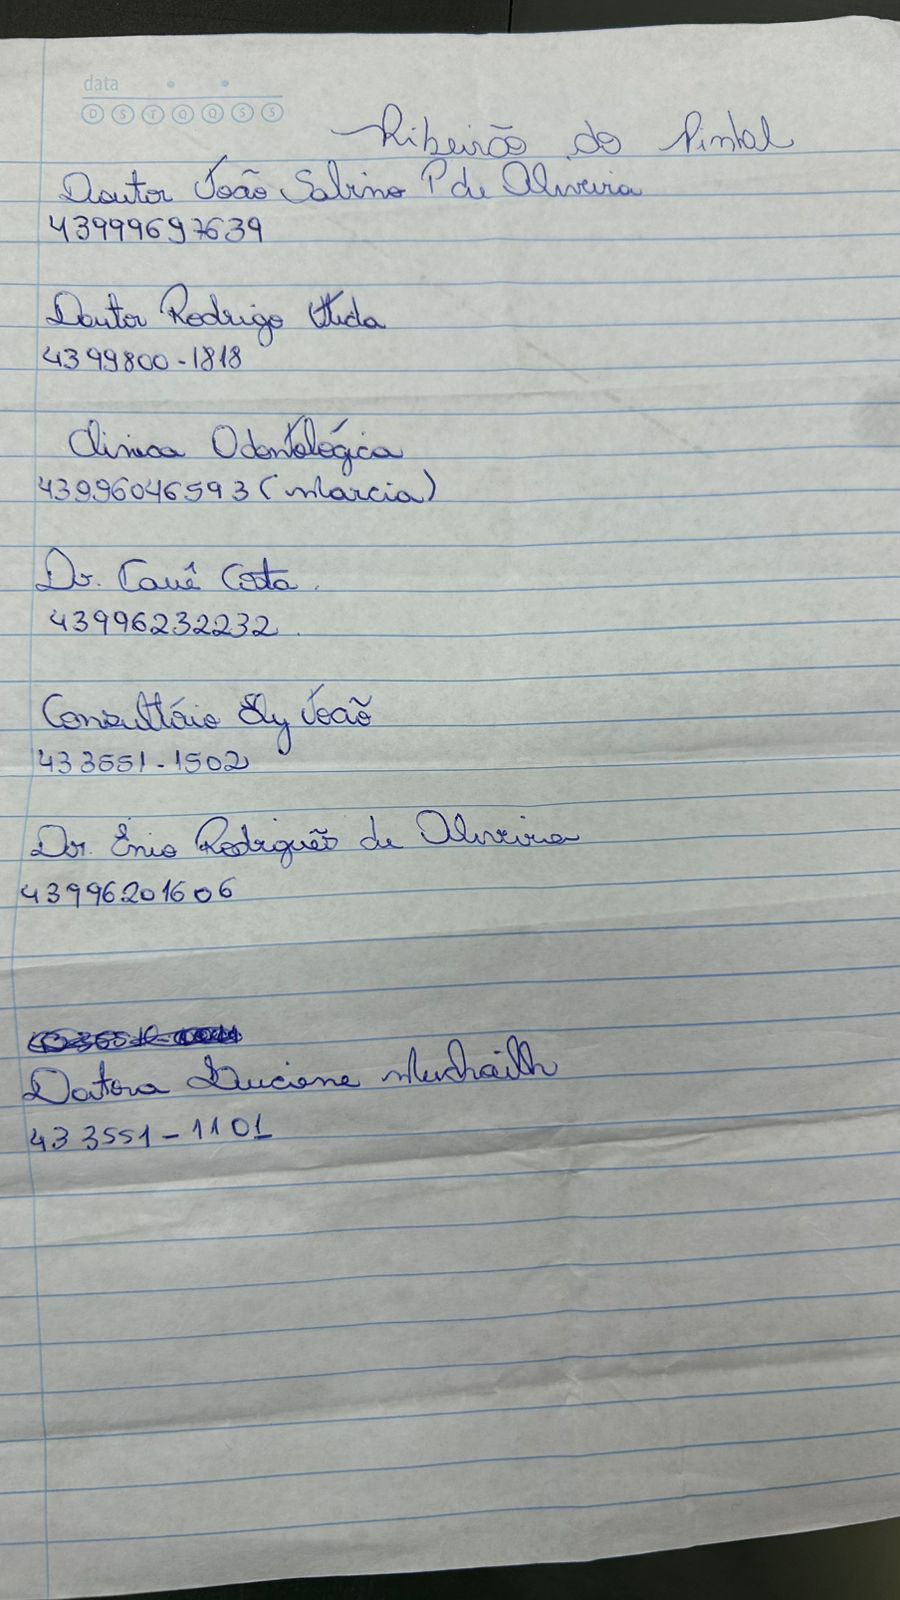 data
D S T Q Q S S
Ribeirão do Pinhal
Doutor João Sabino P de Oliveira
43999697639
Doutor Rodrigo
4399800-1818
Clinica Odontológica
43996046593 (Marcia)
Dr. Cauê Costa.
43996232232.
Consultório Ely João
433551-1502
Dr. Ênio Rodrigues de Oliveira
43996201606
Doutora Luciene
433551-1101